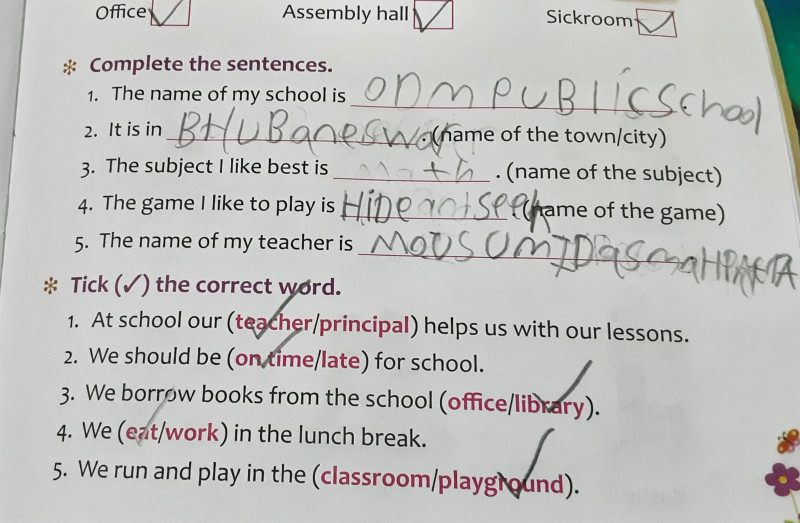 Office ✓ Assembly hall ✓ Sickroom ✓
* Complete the sentences.
1. The name of my school is ODM PUBlIC School
2. It is in BHUBaneswar. (name of the town/city)
3. The subject I like best is math. (name of the subject)
4. The game I like to play is HiDe ant seek. (name of the game)
5. The name of my teacher is MOUSUMI Das
* Tick (✓) the correct word.
1. At school our (teacher/principal) helps us with our lessons.
2. We should be (on time/late) for school.
3. We borrow books from the school (office/library).
4. We (eat/work) in the lunch break.
5. We run and play in the (classroom/playground).